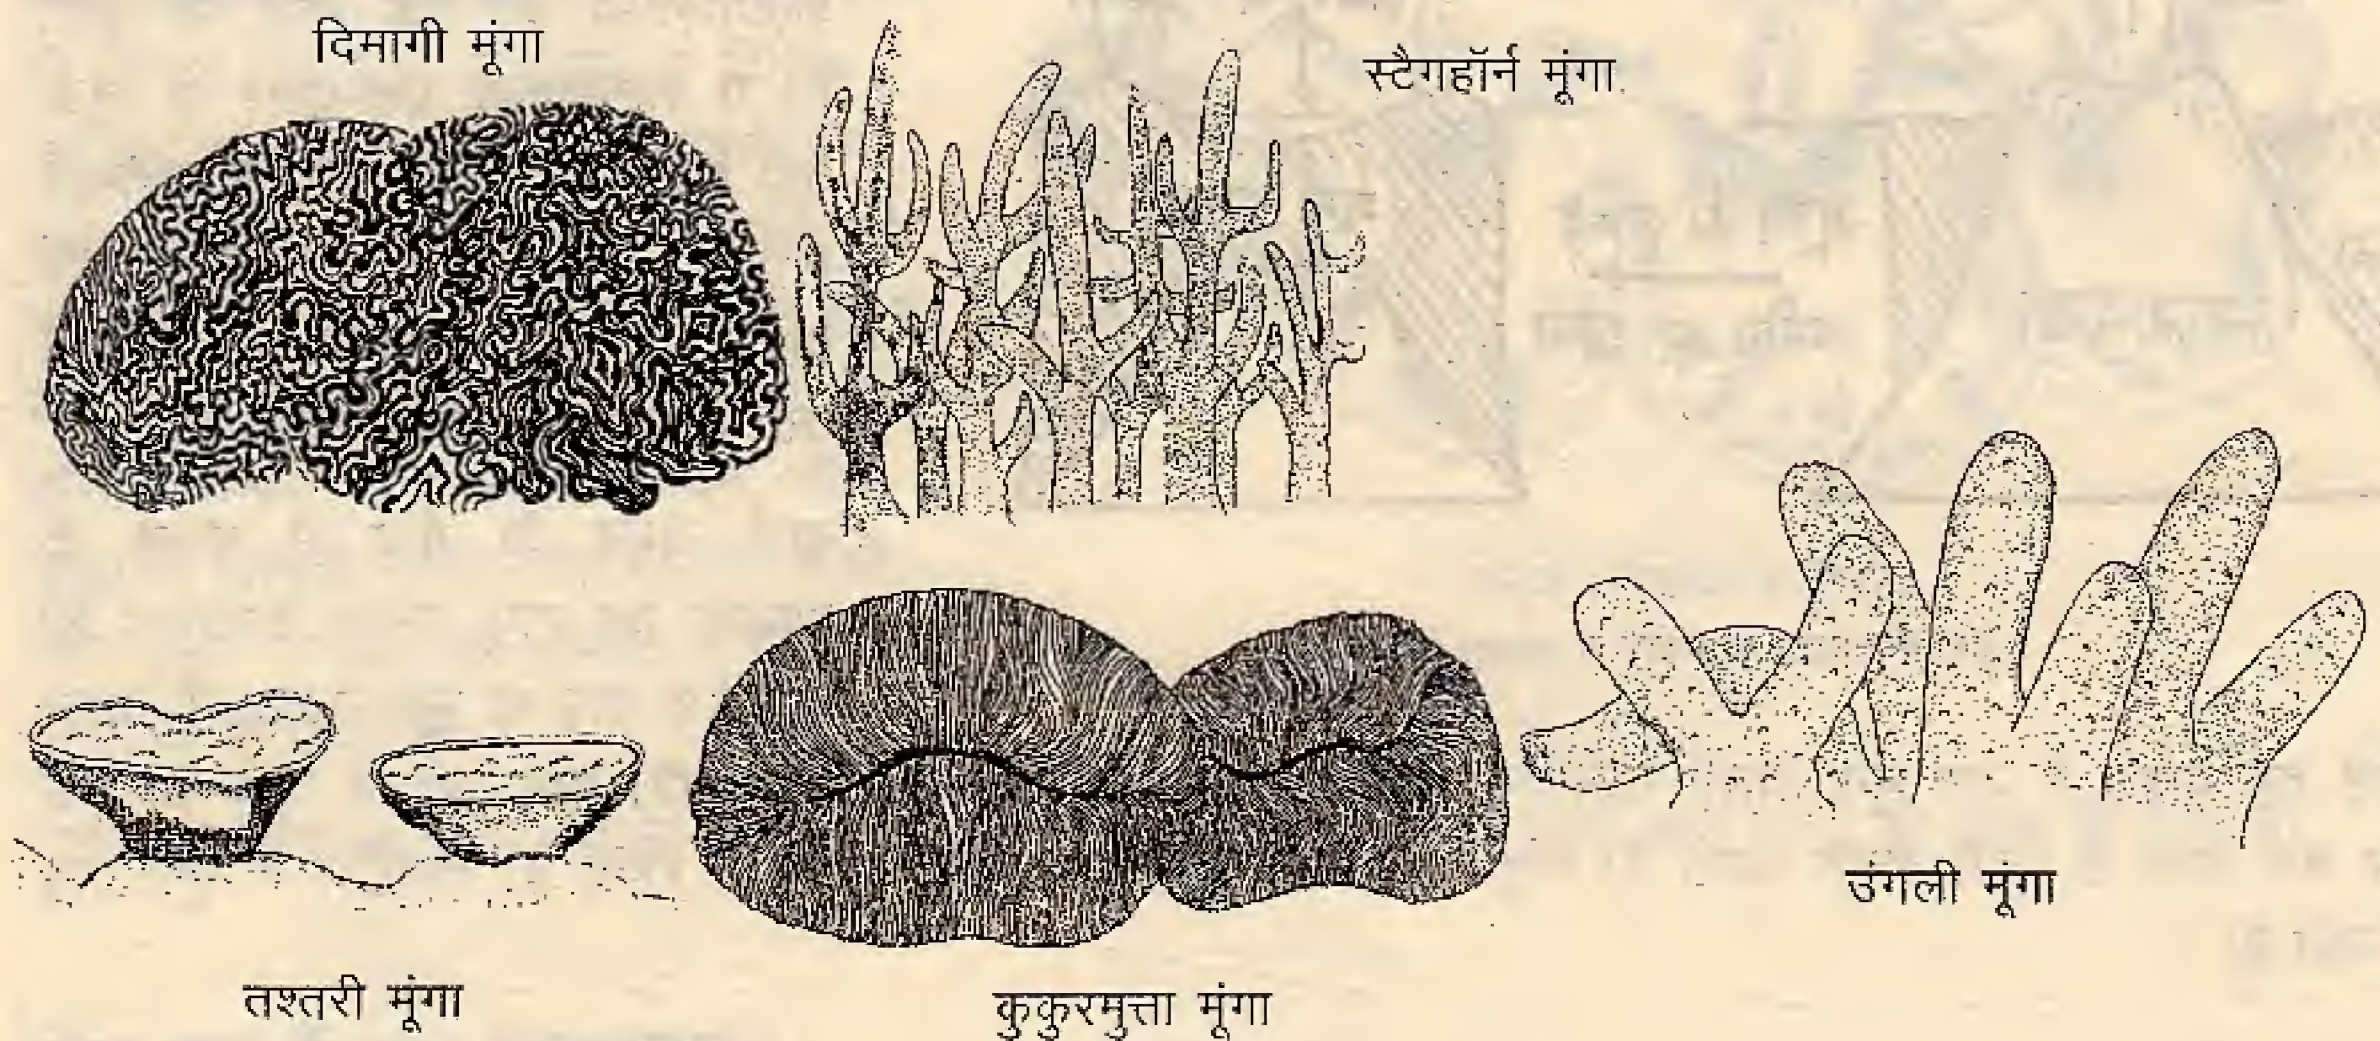 दिमागी मूंगा
स्टैगहॉर्न मूंगा
उंगली मूंगा
तश्तरी मूंगा
कुकुरमुत्ता मूंगा